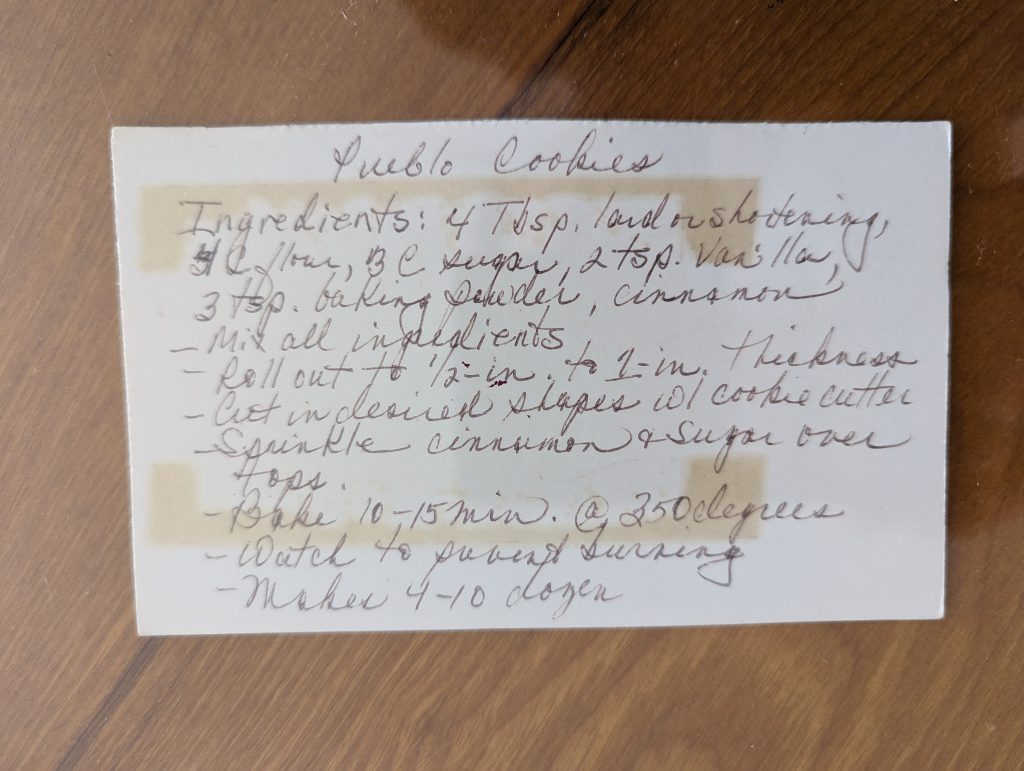 Pueblo Cookies
Ingredients: 4 Tbsp. lard or shortening,
4 C flour, 3 C sugar, 2 tsp. Vanilla,
3 tsp. baking powder, cinnamon
- Mix all ingredients
- Roll out to 1/2-in. to 1-in. thickness
- Cut in desired shapes w/ cookie cutter
- Sprinkle cinnamon & sugar over
tops.
- Bake 10-15 min. @ 350 degrees
- Watch to prevent burning
- Makes 4-10 dozen